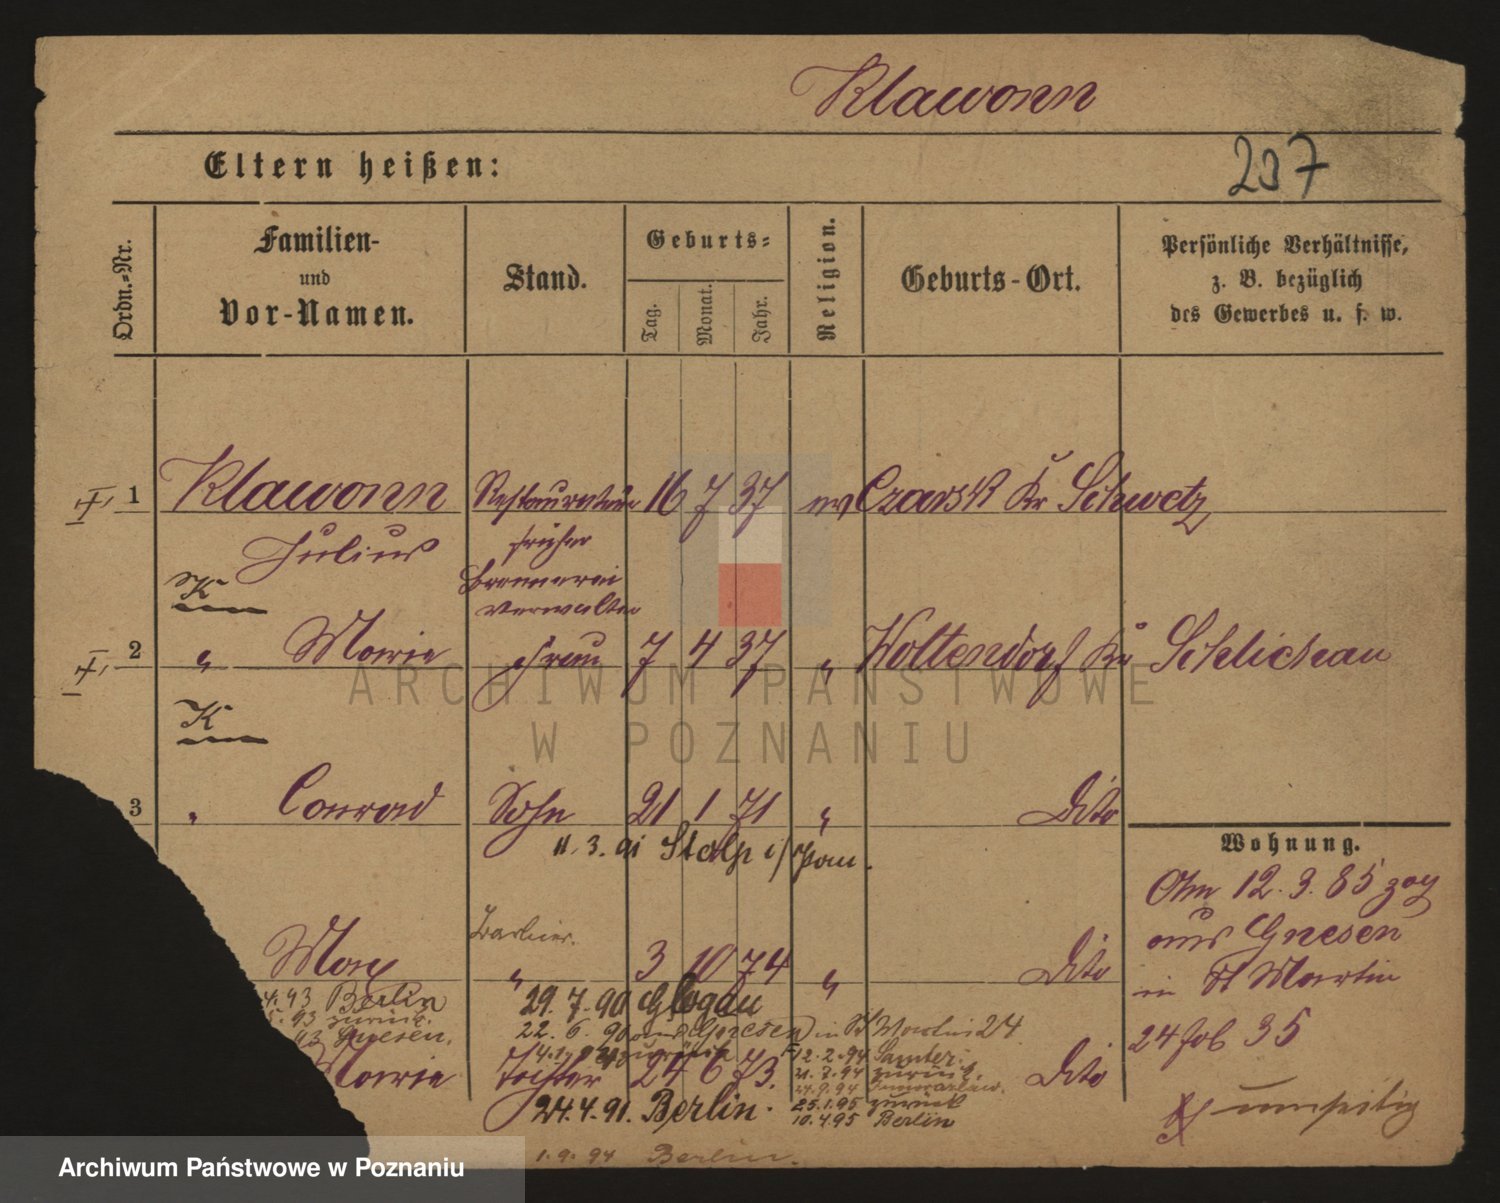 Klawonn
Eltern heißen:
237
Ordn.-Nr.
Familien-
und
Vor-Namen.
Stand.
Geburts-
Tag.
Monat.
Jahr.
Religion.
Geburts-Ort.
Persönliche Verhältnisse,
z. B. bezüglich
des Gewerbes u. s. w.
1 Klawonn Restaurateur 16 7 37 ev Czarsk Kr Schwetz
Julius früher
Brennerei
Verwalter
K
2 " Marie Frau 7 4 37 " Woltendorf Kr Schlichau
K
3 " Conrad Sohn 21 1 71 " Dito
11. 3. 91 Stolp i/Pom.
Wohnung.
12. 3. 85 zog
aus Gnesen
in St Martin
24 Hof 35
Barbier.
Max " 3 10 74 " Dito
93 Berlin 29. 7. 90 Glogau
93 zurück. 22. 6. 90 aus Gnesen in St Martin 24
93 Gnesen. zurück 12. 2. 94 Samter.
Marie Tochter 24 6 73. 21. 7. 94 zurück. Dito
24. 9. 94
24. 4. 91. Berlin. 25. 1. 95 zurück
10. 4. 95 Berlin
1. 9. 94 Berlin.
ARCHIWUM PAŃSTWOWE
W POZNANIU
Archiwum Państwowe w Poznaniu